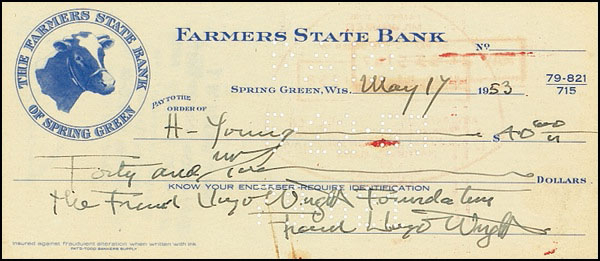 THE FARMERS STATE BANK
OF SPRING GREEN
FARMERS STATE BANK
No.
SPRING GREEN, WIS. May 17 1953
79-821
715
PAY TO THE
ORDER OF
H- Young $40
Forty and DOLLARS
KNOW YOUR ENDORSER-REQUIRE IDENTIFICATION
The Frank Lloyd Wright Foundation
Frank Lloyd Wright
Insured against fraudulent alteration when written with ink